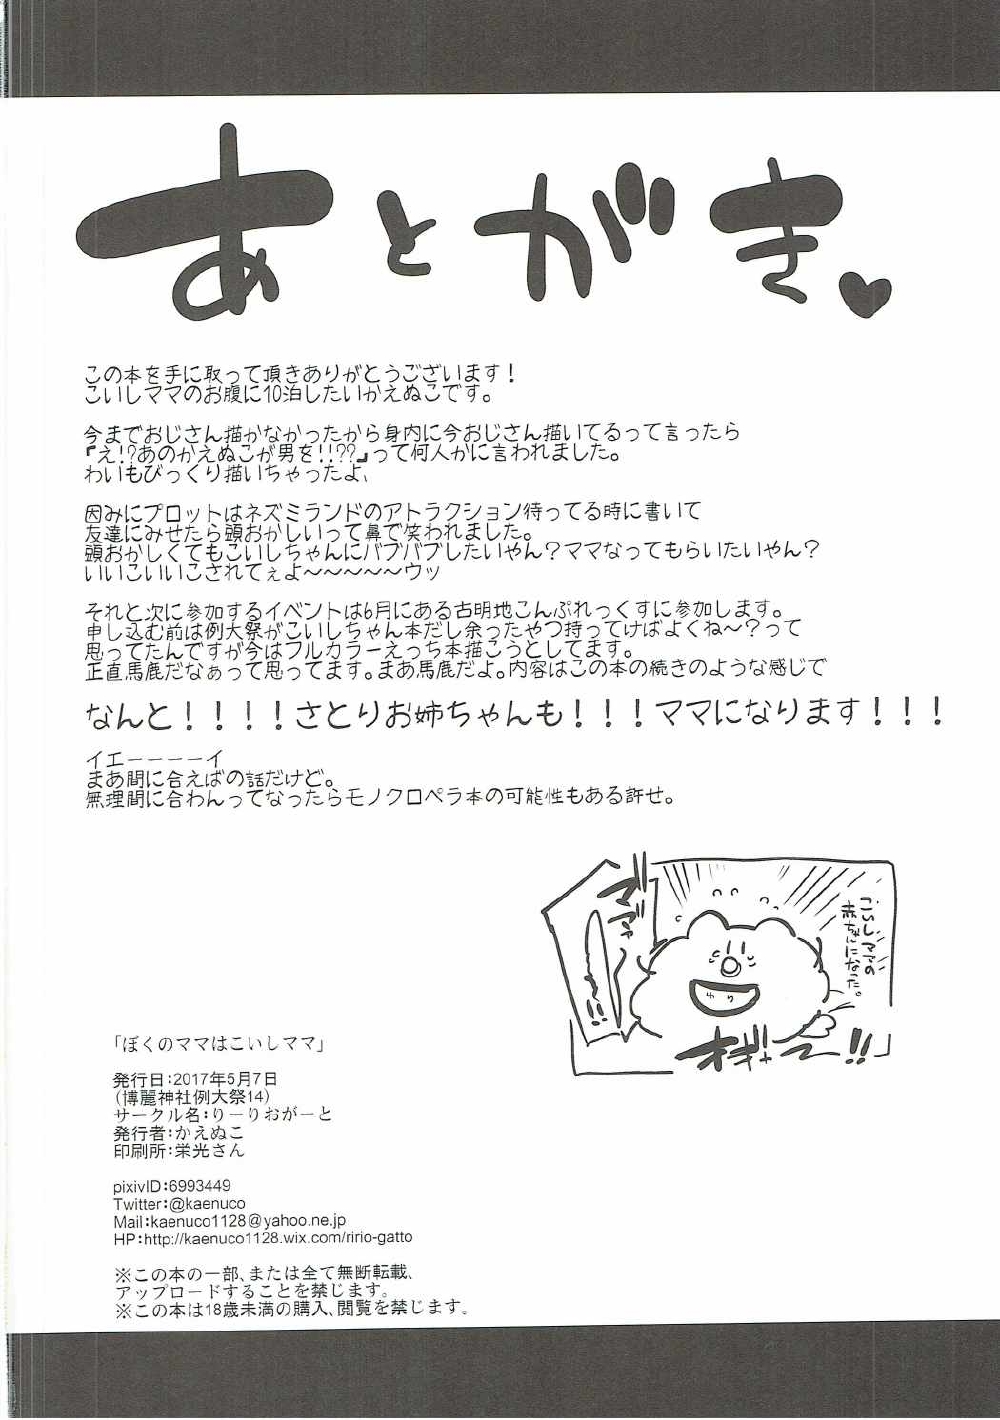 あとがき♥
この本を手に取って頂きありがとうございます！
こいしママのお腹に10泊したいかえぬこです。
今までおじさん描かなかったから身内に今おじさん描いてるって言ったら
『え!?あのかえぬこが男を!!??』って何人かに言われました。
わいもびっくり描いちゃったよ、
因みにプロットはネズミランドのアトラクション待ってる時に書いて
友達にみせたら頭おかしいって鼻で笑われました。
頭おかしくてもこいしちゃんにバブバブしたいやん？ママなってもらいたいやん？
いいこいいこされてぇよ～～～～～ウッ
それと次に参加するイベントは6月にある古明地こんぷれっくすに参加します。
申し込む前は例大祭がこいしちゃん本だし余ったやつ持ってけばよくね～？って
思ってたんですが今はフルカラーえっち本描こうとしてます。
正直馬鹿だなぁって思ってます。まあ馬鹿だよ。内容はこの本の続きのような感じで
なんと！！！！さとりお姉ちゃんも！！！ママになります！！！
イエーーーーイ
まあ間に合えばの話だけど。
無理間に合わんってなったらモノクロペラ本の可能性もある許せ。
ママァー!!
こいしママの
赤ちゃんになった。
ゆり
オギャー!!
「ぼくのママはこいしママ」
発行日：2017年5月7日
(博麗神社例大祭14)
サークル名：りーりおがーと
発行者：かえぬこ
印刷所：栄光さん
pixivID：6993449
Twitter：@kaenuco
Mail：kaenuco1128@yahoo.ne.jp
HP：http://kaenuco1128.wix.com/ririo-gatto
※この本の一部、または全て無断転載、
アップロードすることを禁じます。
※この本は18歳未満の購入、閲覧を禁じます。